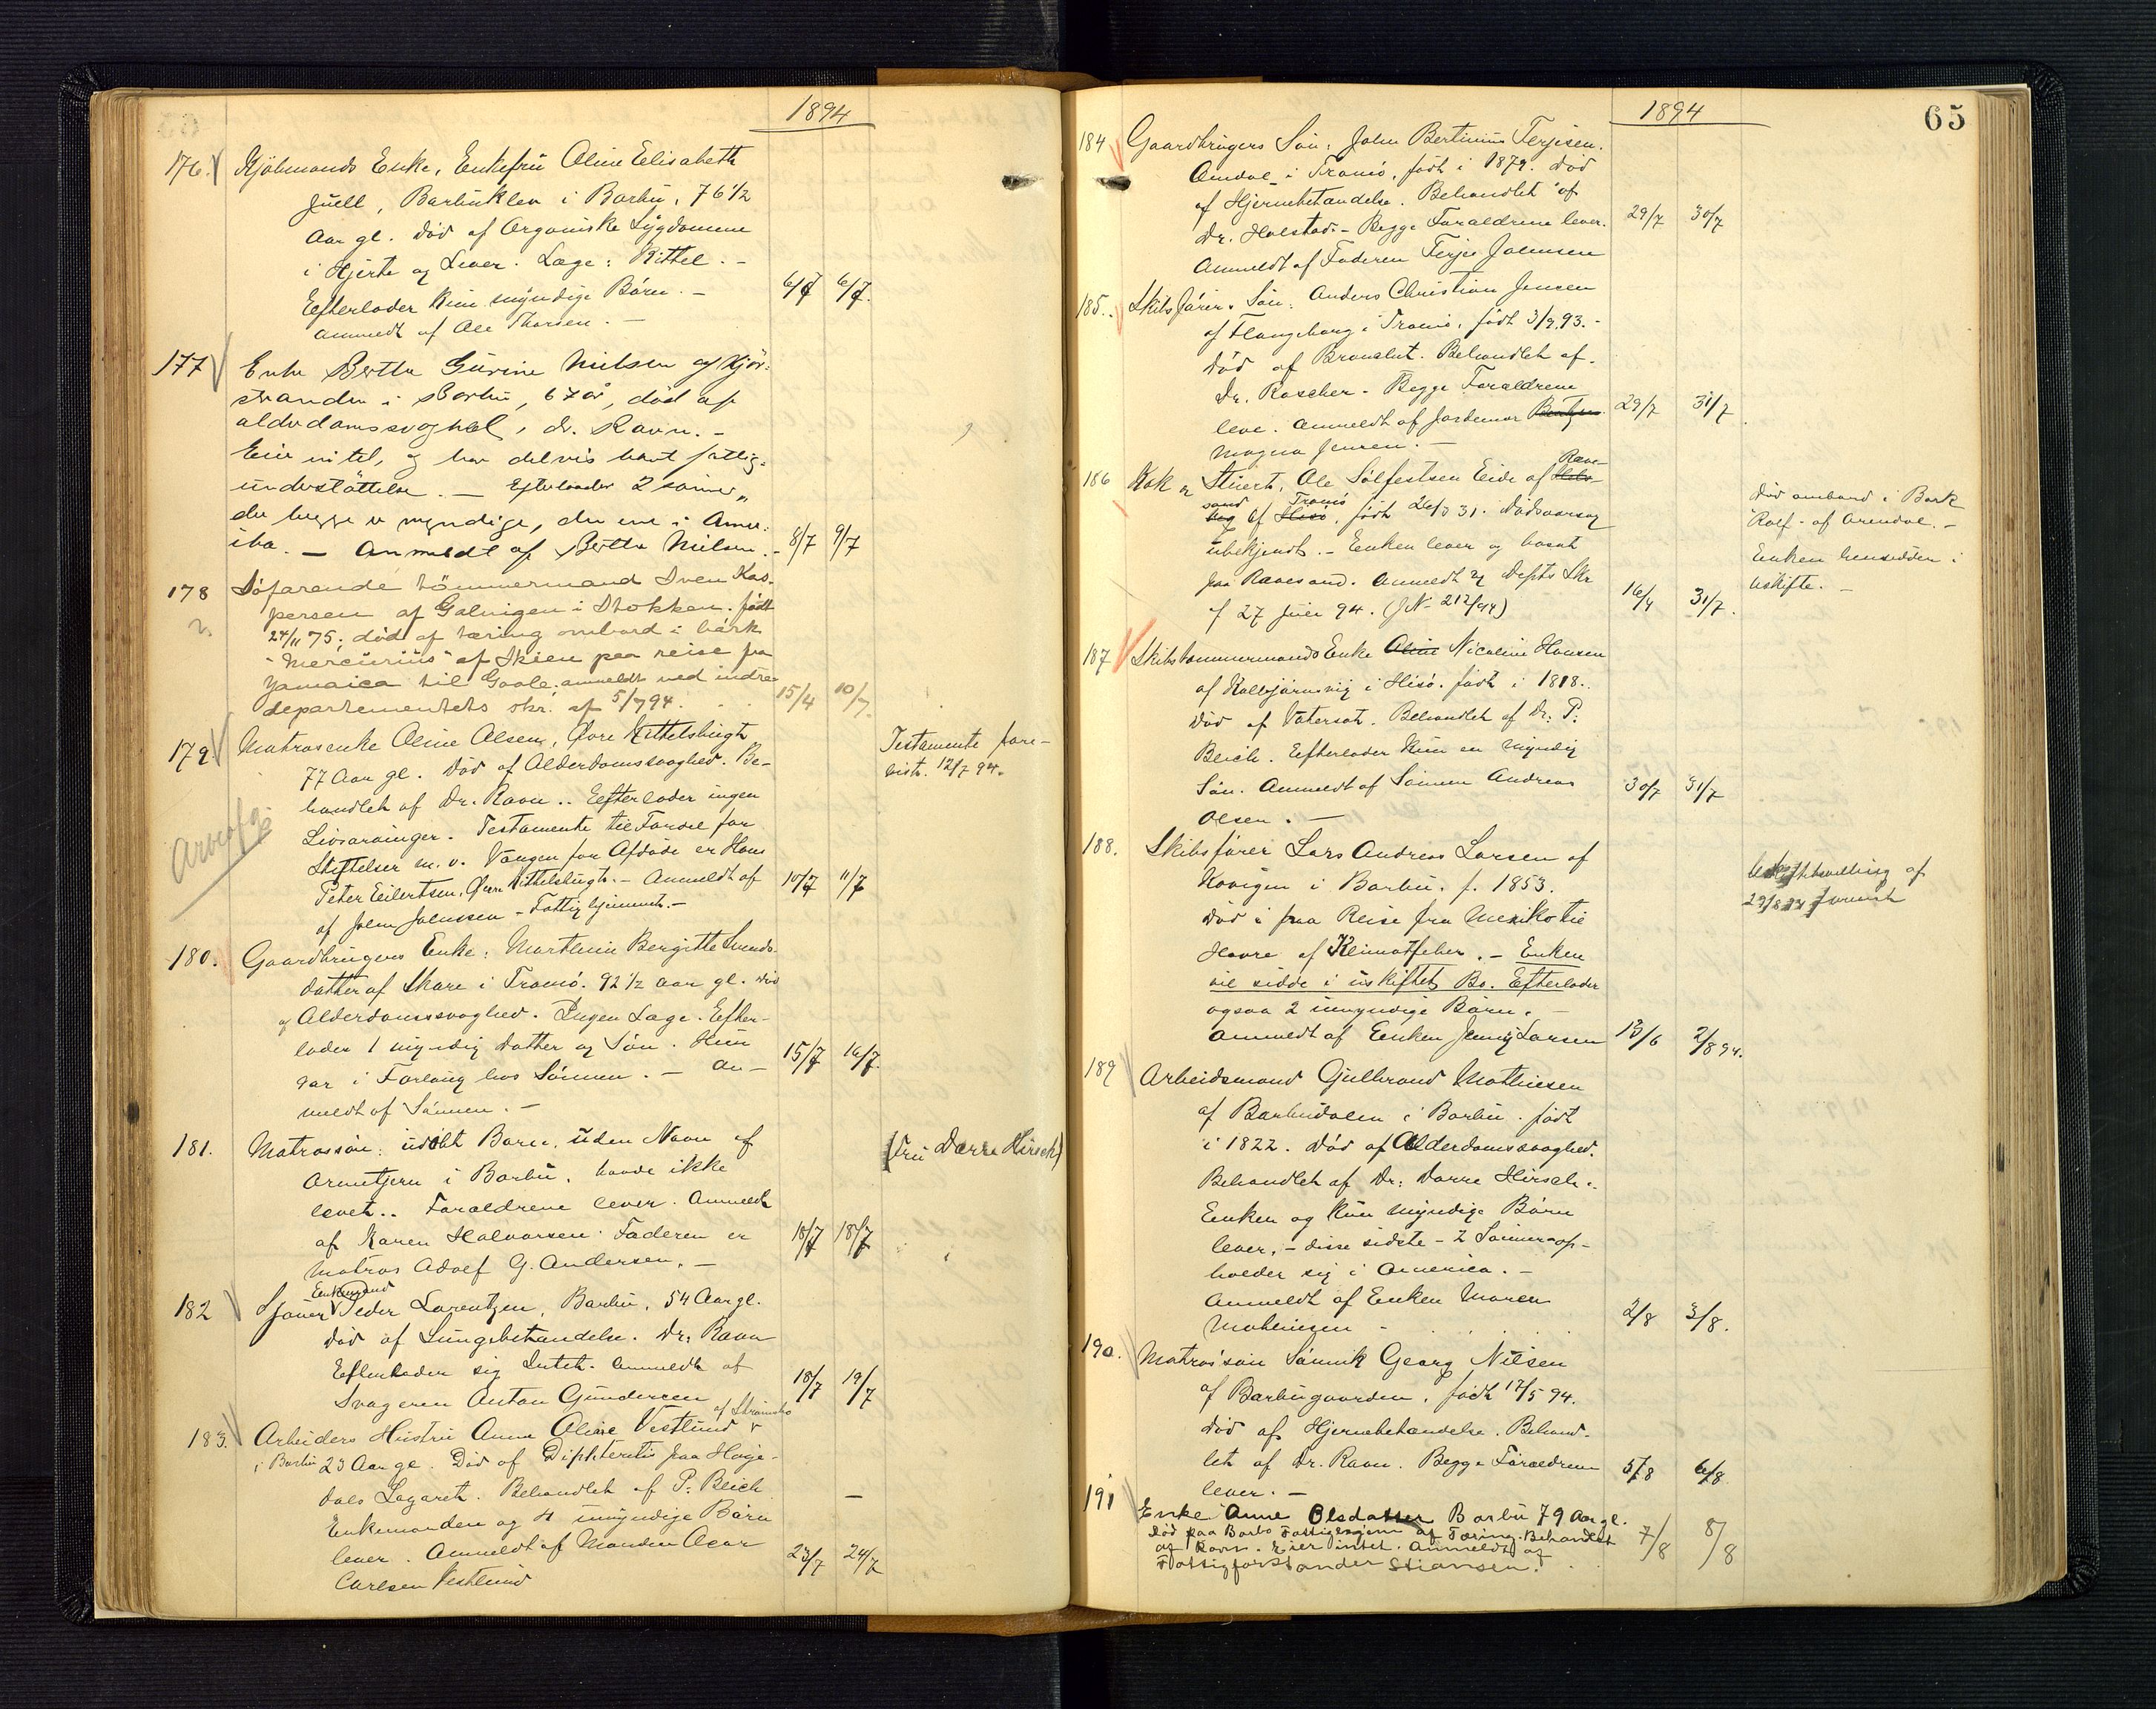 1894
176. Kjøbmands Enke, Enkefru Oline Elisabeth
Juell, Barbuklev i Barbu, 76 1/2
Aar gl. død af Organiske Sygdomme
i Hjerte og Lever. Læge: Kittel. -
Efterlader kun myndige Børn. -
anmeldt af Ole Thorsen. -
6/7 6/7.
177 Enke Berthe Gurine Nielsen af Kjør-
stranden i Barbu, 67 år, død af
alderdomssvaghed, dr. Ravn. -
Eier intet, og har delvis havt fattig-
understøttelse. - Efterlader 2 sønner,
der begge er myndige, den ene i Amer-
ika. - Anmeldt af Berthe Nielsen. -
8/7 9/7
178 Søfarende tømmermand Sven Kas-
persen af Galvigen i Stokken. født
24/11 75; død af tæring ombord i bark
"Mercurius" af Skien paa reise fra
Yamaica til Goole. anmeldt ved indre-
departementets skr. af 5/7 94.
15/4 10/7.
179. Matrosenke Oline Olsen, Øvre Kittelsbugt
77 Aar gl. Død af Alderdomssvaghed. Be-
handlet af Dr. Ravn.. Efterlader ingen
Livsarvinger. Testamente til Fordel for
Stiftelser m. v. Værgen for Afdøde er Hans
Peter Eilertsen, Øvre Kittelsbugt. - Anmeldt af
af John Johnssen - Fattighjemmet. -
10/7 11/7
Testamente fore-
vist. 12/7 94.
Arveafg.
180. Gaardbrugers Enke: Marthine Bergitte Svends-
datter af Skare i Tromø. 92 1/2 aar gl. død
af Alderdomssvaghed. Ingen Læge. Efter-
lader 1 myndig Datter og Søn. Hun
var i Forlaug hos Sønnen. - An-
meldt af Sønnen. -
15/7 16/7.
181. Matrossøn: udøbt Barn, uden Navn af
i Barbu, havde ikke
levet.. Forældrene lever. Anmeldt
af Karen Halvorsen. Faderen er
Matros Adolf G. Andersen. -
18/7 18/7
(Fru Dørre Hirsch)
182 Sjauer Enkemand Peder Lorentzen, Barbu, 54 Aar gl.
død af Lungebetændelse. Dr: Ravn
Efterlader sig Intet. Anmeldt af
Svageren Anton Gundersen
18/7 19/7
183. Arbeiders Hustru Anna Oline Vestlund af Strømsbo
i Barbu 23 Aar gl. Død af Diphteritis paa Heje-
dals Lazaret. Behandlet af P. Bleich
Enkemanden og 4 umyndige Børn
lever. Anmeldt af Manden
Carlsen Vestlund
23/7 24/7
1894
65
184 Gaardbrugers Søn: John Bertinius Terjesen.
i Tromø, født i 1879. død
af Hjernebetændelse. Behandlet af
Dr. Holstad. - Begge Forældrene lever.
Anmeldt af Faderen Terje Johnsen
29/7 30/7
185. Skibsførers Søn: Anders Christian Jensen
af Flangeborg i Tromø, født 3/9. 93. -
død af Bronchit. Behandlet af.
Dr. Roscher - Begge Forældrene
leve. Anmeldt af Jordemor Bentzen
Magna Jensen. -
29/7 31/7.
186 Kok & Stuert, Ole Solfestsen Eide af Ræve-
sand Tromø, født 26/3 31. Dødsaarsag
ubekjendt. - Enken lever og boende
paa Rævesand. Anmeldt ved Depts Skr
af 27 Juli 94. (J.N. 212/94)
16/4 31/7.
Død ombord i Bark
Rolf - af Arendal. -
Enken hensidder i
Uskifte. -
187 Skibstømmermands Enke Oline Nicoline Hansen
af Kolbjørnsvig i Hisø. født i 1818.
død af Vatersot. Behandlet af Dr: P.
Bleich. Efterlader kun en myndig
Søn. Anmeldt af Sønnen Andreas
Olsen. -
30/7 31/7
188. Skibsfører Lars Andreas Larsen af
Kovigen i Barbu. f. 1853.
død i paa Reise fra Mexiko til
Havre af Klimatfeber. - Enken
vil sidde i uskiftet Bo. Efterlader
ogsaa 2 umyndige Børn. -
Anmeldt af Enken Jenny Larsen
13/6 2/8 94.
Uskiftebevilling af
29/8 94 forevist
189 Arbeidsmand Gulbrand Mathiesen
af Barbudalen i Barbu. født
i 1822. Død af Alderdomssvaghed.
Behandlet af Dr: Dørre Hirsch.
Enken og kun myndige Børn
lever, - disse sidste - 2 Sønner - op-
holder sig i America. -
Anmeldt af Enken Maren
Mathiesen -
2/8 3/8.
190. Matros'søn Sønnik Georg Nilsen
af Barbugaarden. født 17/5 94.
Død af Hjernebetændelse. Behand-
let af Dr. Ravn. Begge Forældrene
lever. -
5/8 6/8
191 Enke Anne Olsdatter Barbu 79 Aar gl.
død paa Barbo Fattighjem af Tæring. Behandlet
af Ravn. Eier intet. Anmeldt af
Fattigforstander Stiansen.
7/8 8/8